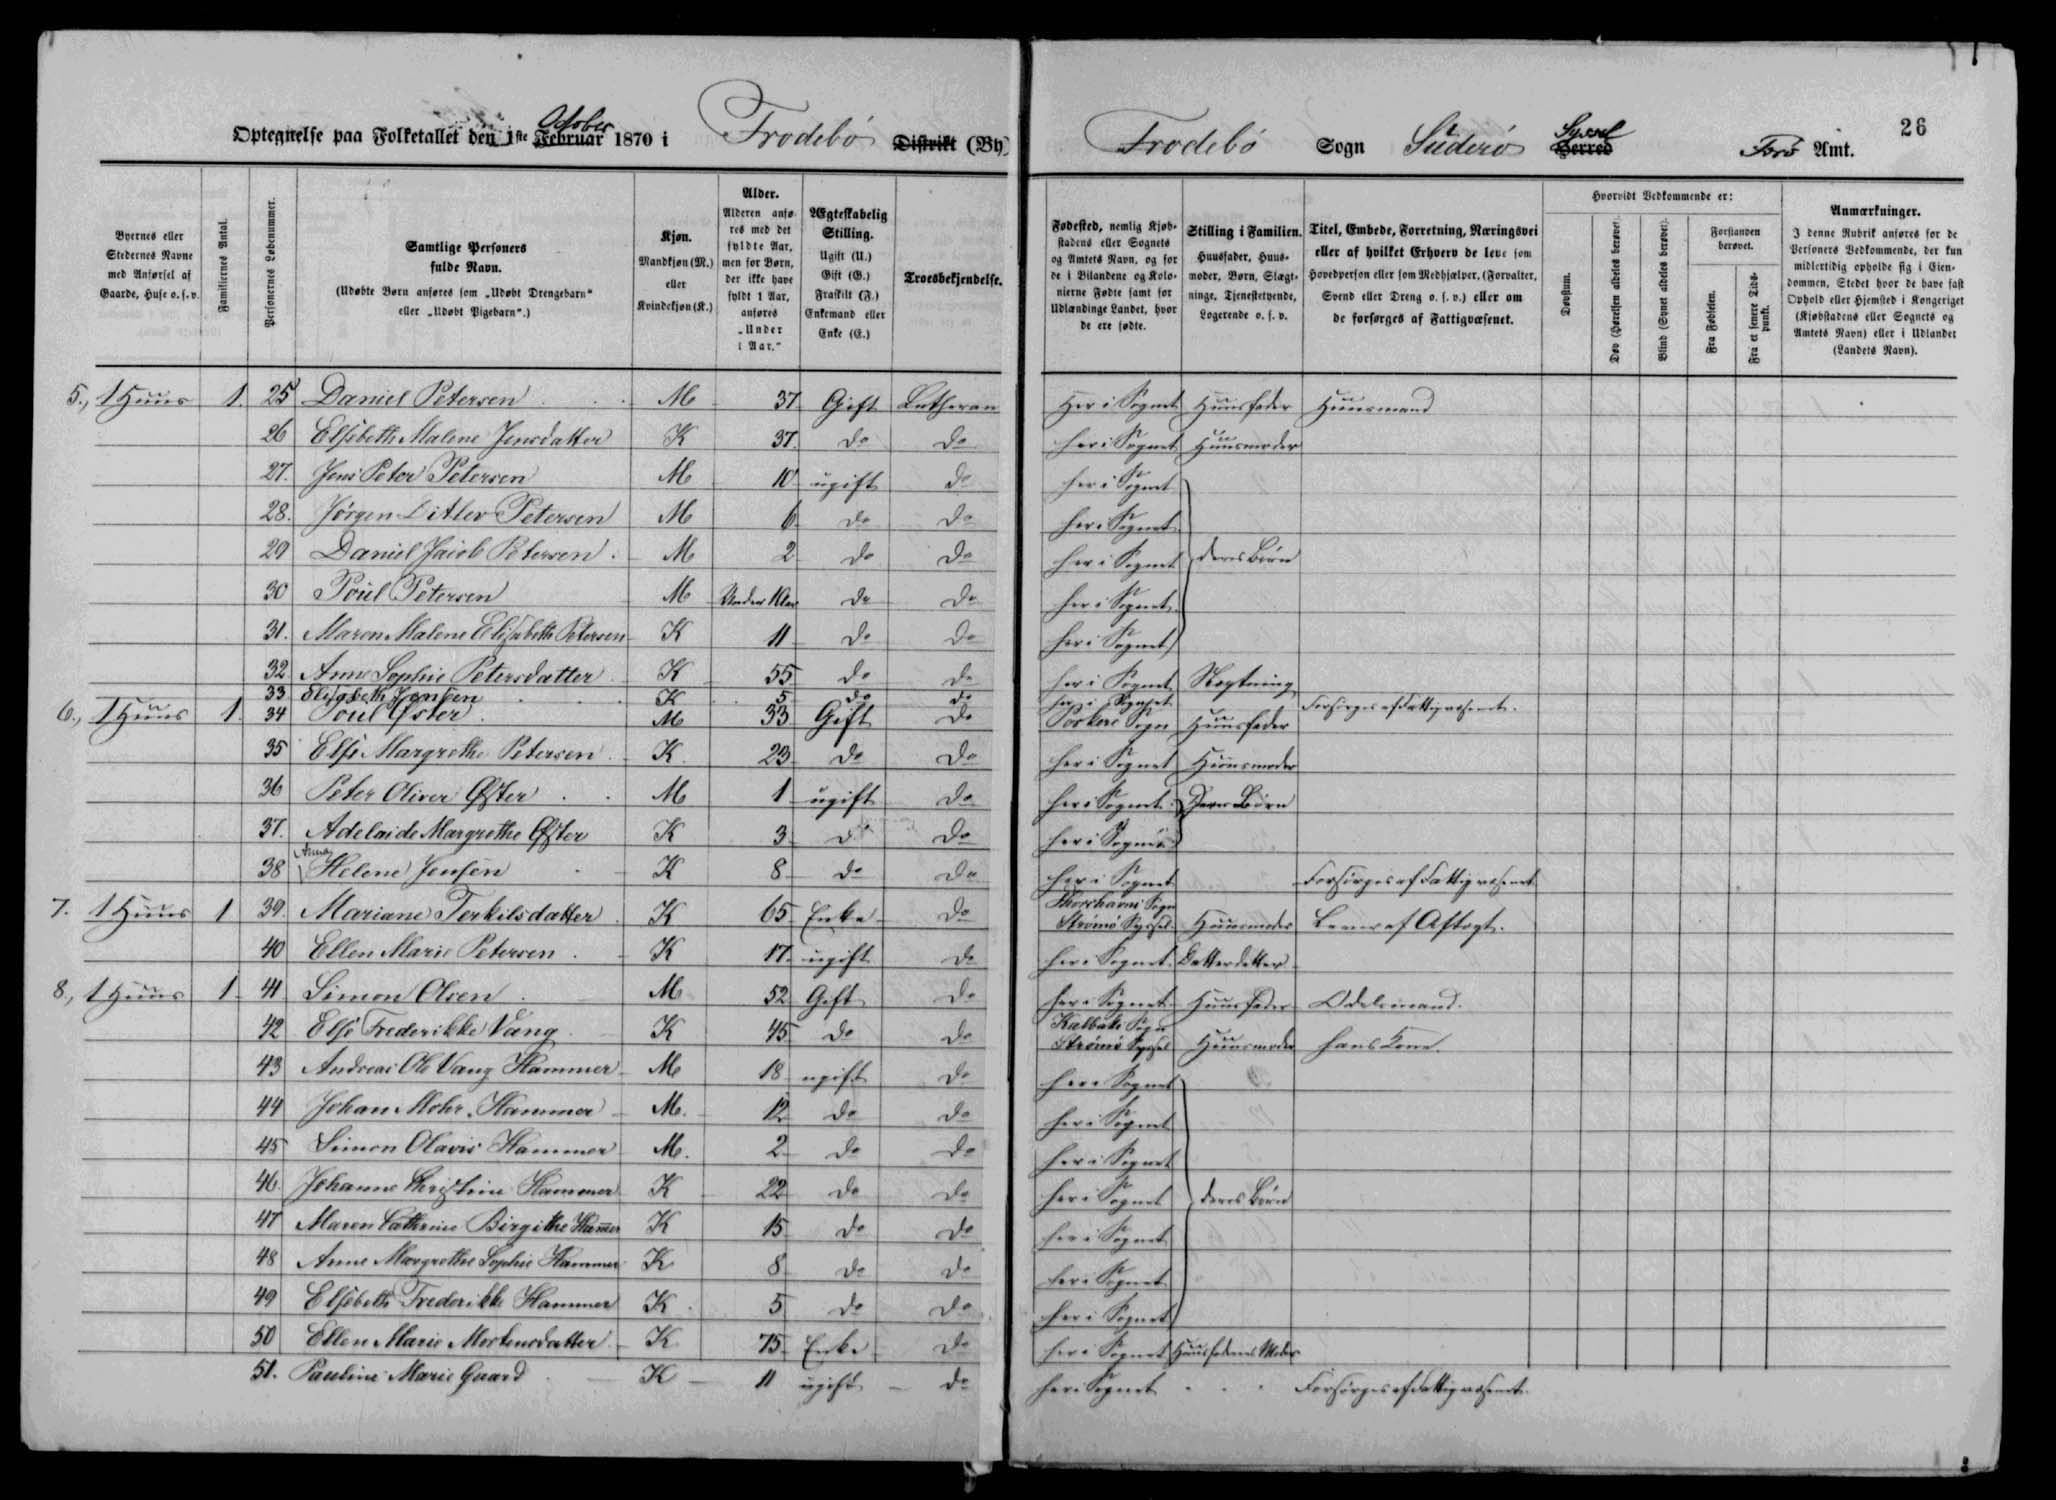 Optegnelse paa Folketallet den 1ste Februar October 1870 i Frodebö Distrikt (By)
Frodebö Sogn Süderö Herred Syssel Færö Amt.
26
Byernes eller Stedernes Navne med Anførsel af Gaarde, Huse o. s. v.
Familiernes Antal.
Personernes Løbenummer.
Samtlige Personers fulde Navn. (Udøbte Børn anføres som „Udøbt Drengebarn“ eller „Udøbt Pigebarn“.)
Kjøn. Mandkjøn (M.) eller Kvindekjøn (K.)
Alder. Alderen anføres med det fyldte Aar, men for Børn, der ikke have fyldt 1 Aar, anføres „Under 1 Aar.“
Ægteskabelig Stilling. Ugift (U.) Gift (G.) Fraskilt (F.) Enkemand eller Enke (E.)
Troesbekjendelse.
Fødested, nemlig Kjøbstadens eller Sognets og Amtets Navn, og for de i Bilandene og Kolonierne Fødte samt for Udlændinge Landet, hvor de ere fødte.
Stilling i Familien. Huusfader, Huusmoder, Børn, Slægtninge, Tjenestetyende, Logerende o. s. v.
Titel, Embede, Forretning, Næringsvei eller af hvilket Erhverv de leve som Hovedperson eller som Medhjælper, (Forvalter, Svend eller Dreng o. s. v.) eller om de forsørges af Fattigvæsenet.
Hvorvidt Vedkommende er:
Døvstum.
Døv (Hørelsen aldeles berøvet)
Blind (Synet aldeles berøvet)
Forstanden berøvet.
Fra Fødselen.
Fra et senere Tidspunkt.
Anmærkninger. I denne Rubrik anføres for de Personers Vedkommende, der kun midlertidig opholde sig i Eiendommen, Stedet hvor de have fast Ophold eller Hjemsted i Kongeriget (Kjøbstadens eller Sognets og Amtets Navn) eller i Udlandet (Landets Navn).
5., 1 Huus 1. 25 Daniel Petersen M 37 Gift Lutheran Her i Sognet Huusfader Huusmand
26 Elsebeth Malene Jensdatter K 37. do do her i Sognet Huusmoder
27. Jens Peter Petersen M 10 ugift do her i Sognet
28. Jörgen Ditlev Petersen M 6 do do her i Sognet
29 Daniel Jacob Petersen M 2 do do her i Sognet deres Börn
30 Poul Petersen M Under 1 Aar do do her i Sognet
31. Maren Malene Elisabeth Petersen K 11 do do her i Sognet
32 Anne Sophie Petersdatter K 55 do do her i Sognet Slægtning
33 Elisabeth Jensen K 5 do do her i Sognet Forsörges af Fattigvæsenet.
6., 1 Huus 1. 34 Poul Øster M 33 Gift do Porkeri Sogn Huusfader
35 Else Margrethe Petersen K. 23 do do her i Sognet Huusmoder
36 Peter Oliver Øster M 1 ugift do her i Sognet Deres Börn
37. Adelaide Margrethe Øster K 3 do do her i Sognet
38 Anna Helene Jensen K 8 do do her i Sognet Forsörges af Fattigvæsenet
7. 1 Huus 1 39. Mariane Terkilsdatter K 65 Enke do Thorshavns Sogn Strömö Syssel Huusmoder Lever af Aftægt.
40 Ellen Marie Petersen K 17 ugift do her i Sognet Datterdatter
8., 1 Huus 1 41 Simon Olsen M 52 Gift do her i Sognet Huusfader Odelsmand.
42 Else Frederikke Vang K 45 do do Kalbaks Sogn Strömö Syssel Huusmoder hans Kone.
43 Andreas Ole Vang Hammer M 18 ugift do her i Sognet
44 Johan Mohr Hammer M. 12 do do her i Sognet
45 Simon Olavis Hammer M. 2 do do her i Sognet
46. Johanne Christine Hammer K 22 do do her i Sognet deres Börn
47 Maren Cathrine Birgithe Ham̄er K 15 do do her i Sognet
48 Anne Margrethe Sophie Hammer K 8 do do her i Sognet
49 Elsebeth Frederikke Hammer K 5 do do her i Sognet
50 Ellen Marie Mortensdatter K 75 Enke do her i Sognet Huusfaderens Moder
51. Pauline Marie Gaard K 11 ugift do her i Sognet Forsörges af Fattigvæsenet.